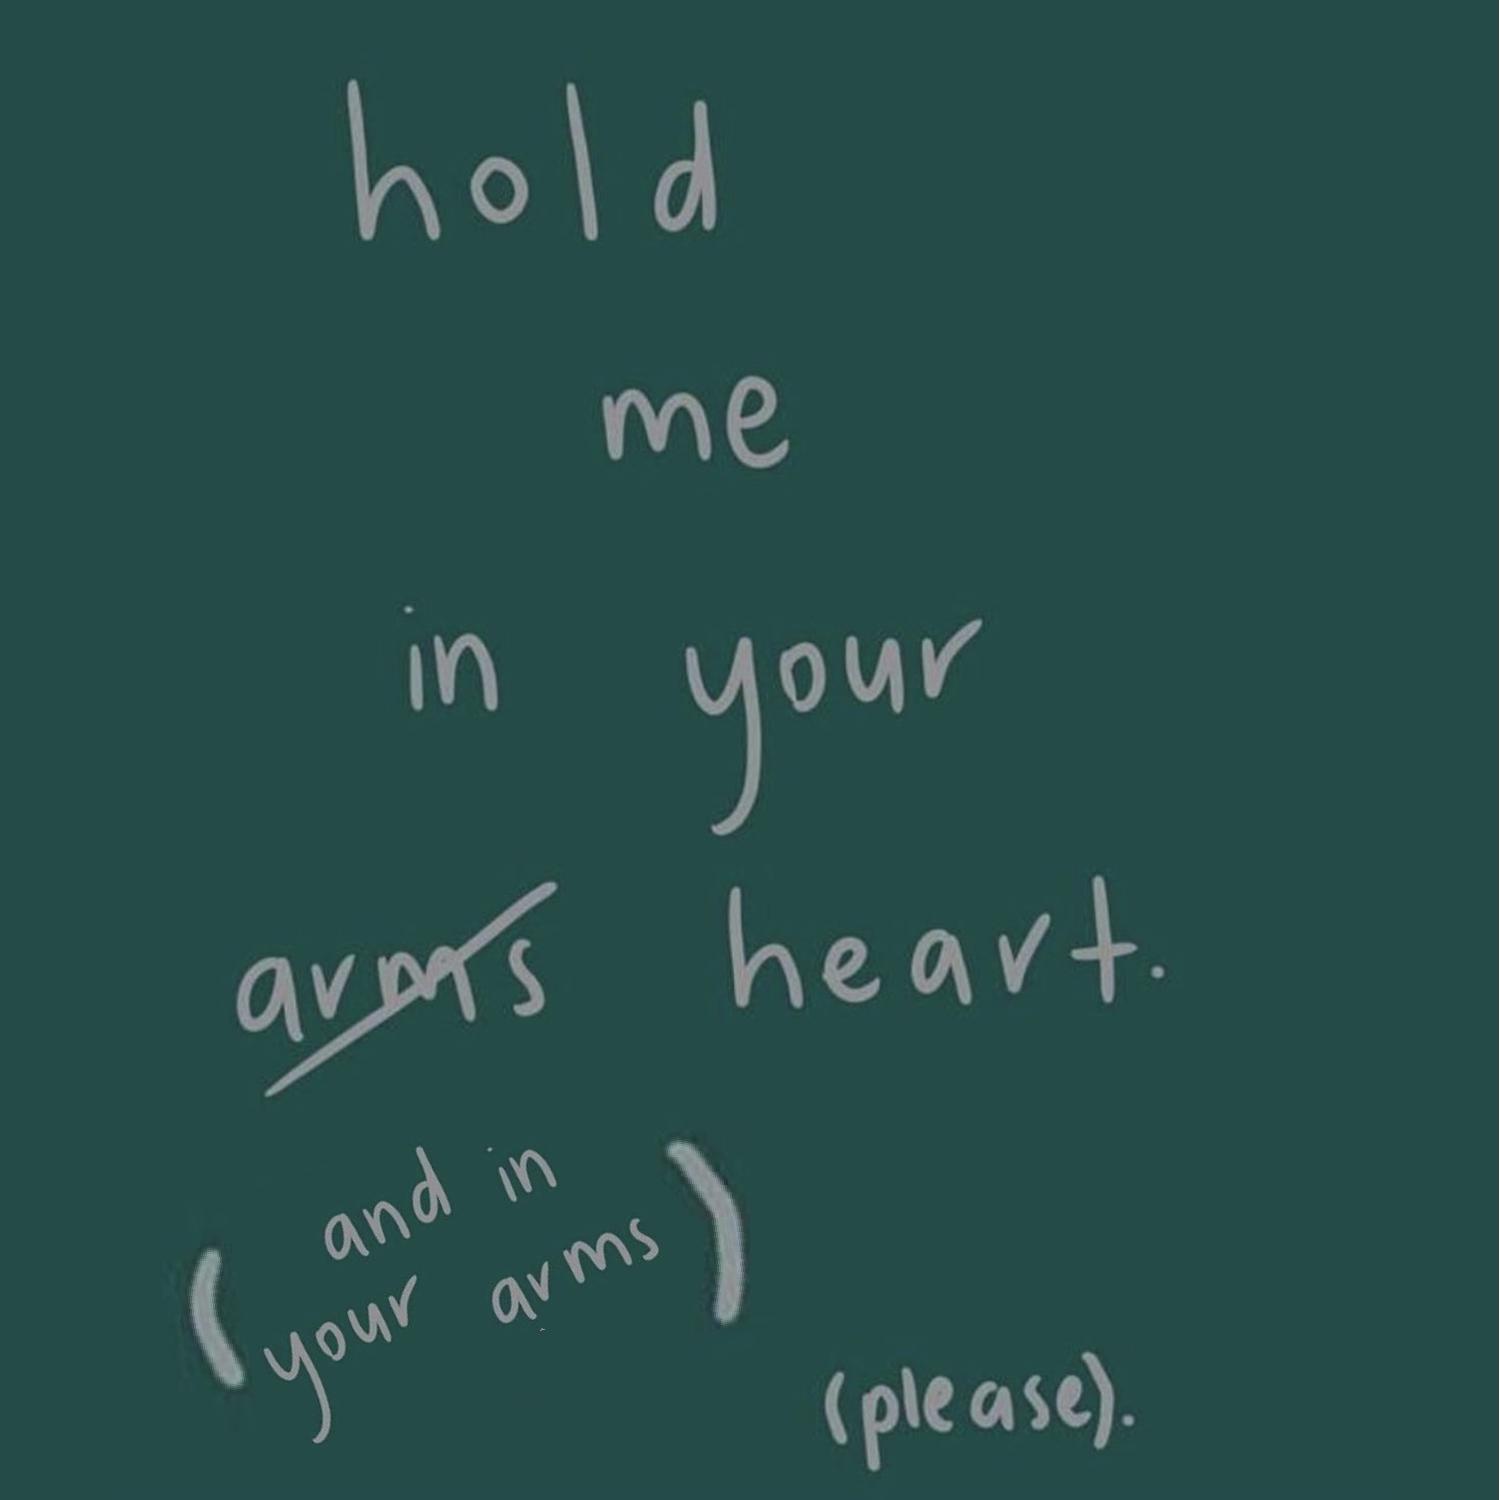 hold
me
in your
arms heart.
(and in
your arms)
(please).